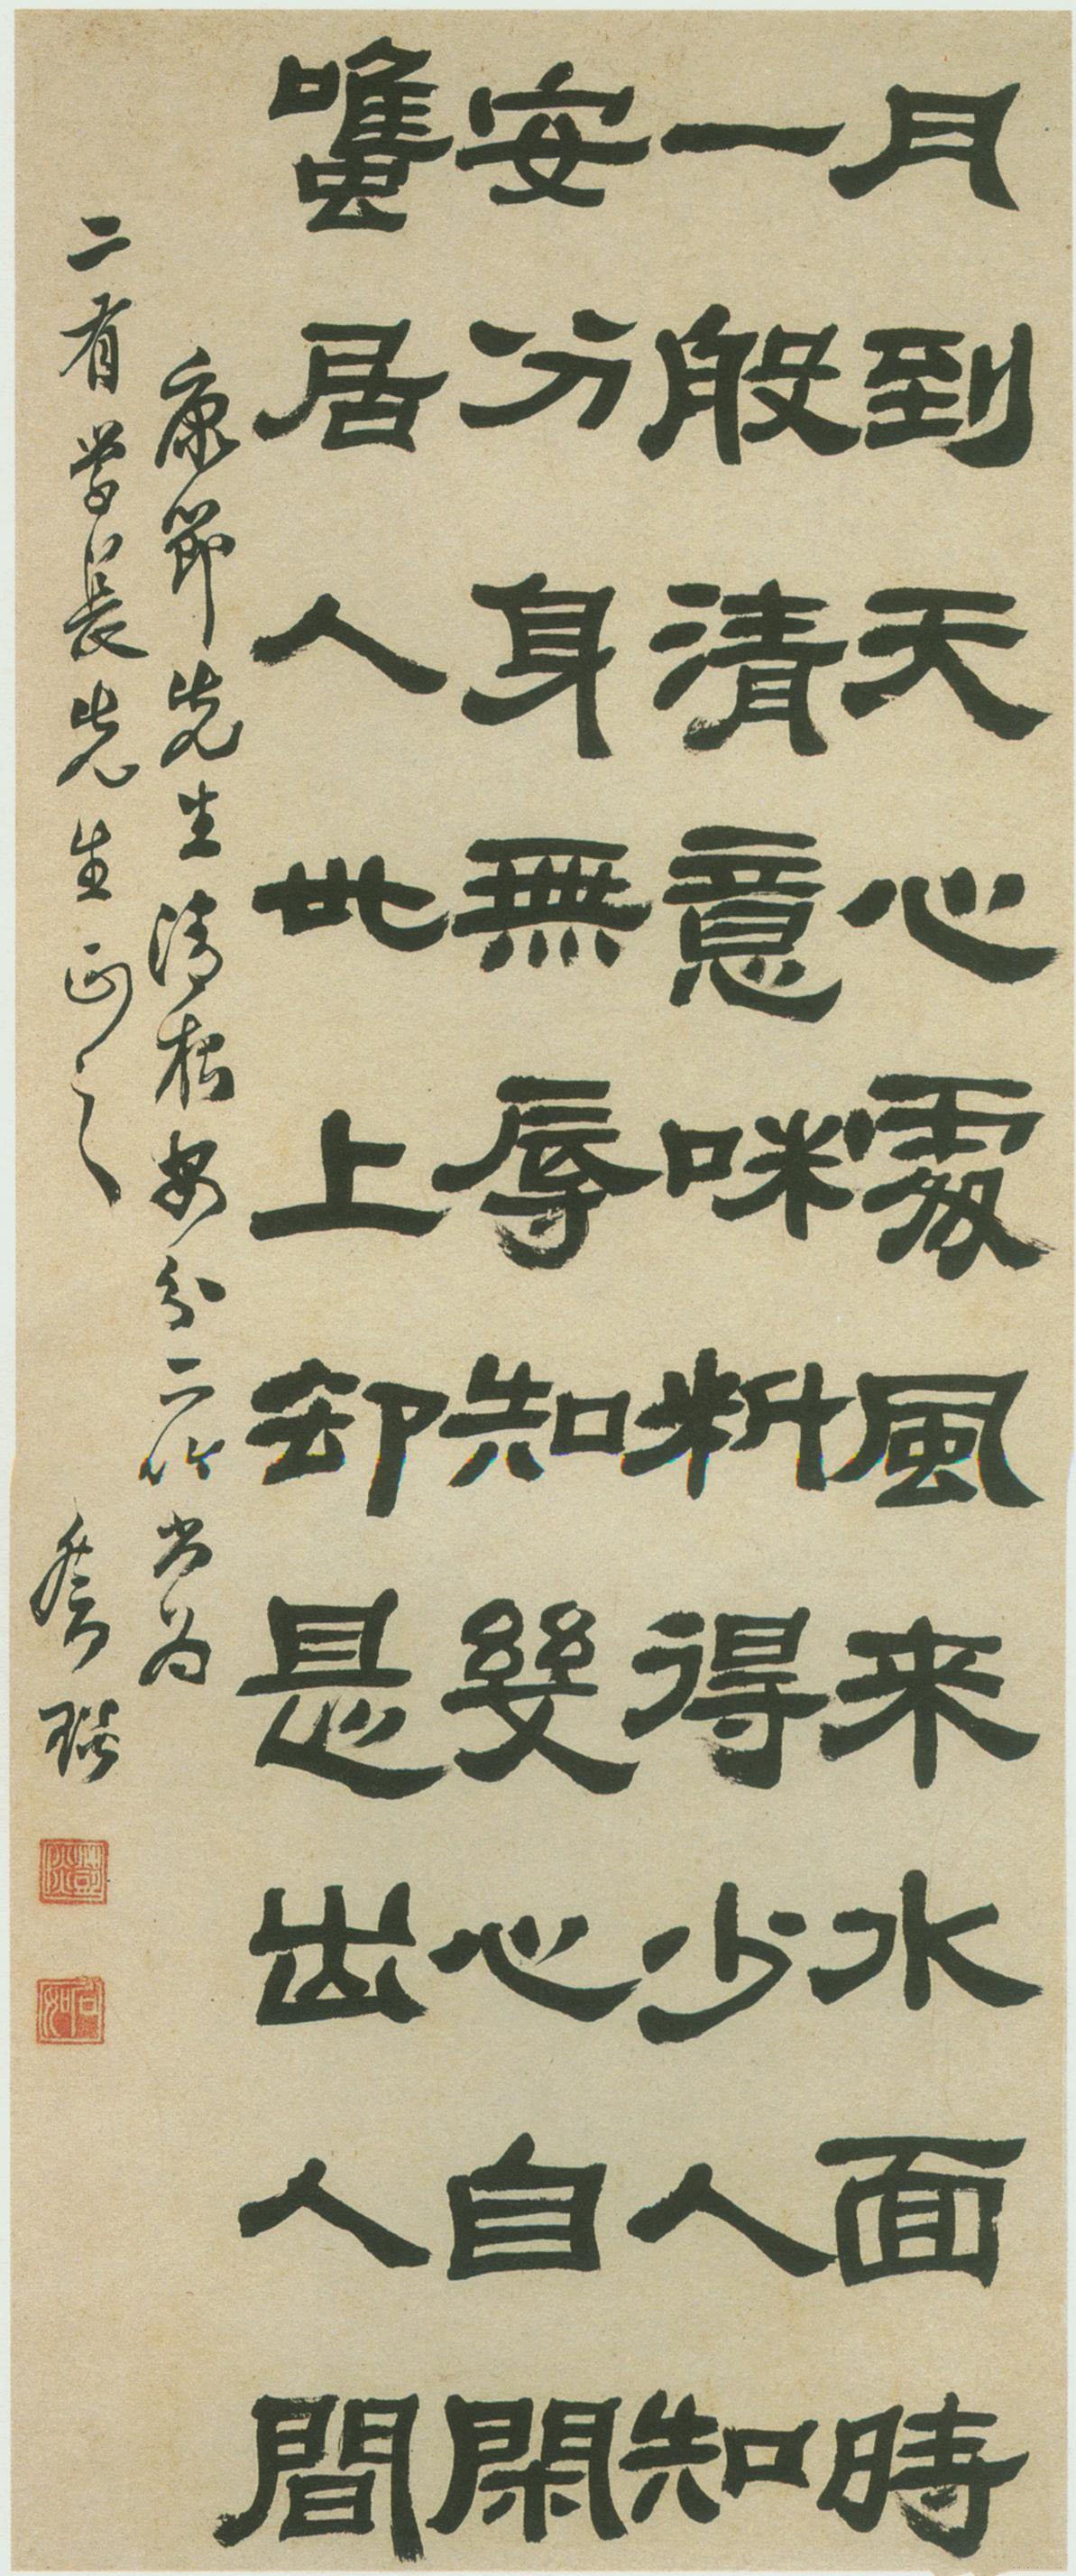 月到天心處風来水面時
一般清意味料得少人知
安分身無辱知幾心自閑
雖居人世上却是出人間
康節先生清夜安分二吟書為
二有學長先生正之
鄧琰
鄧琰
石如